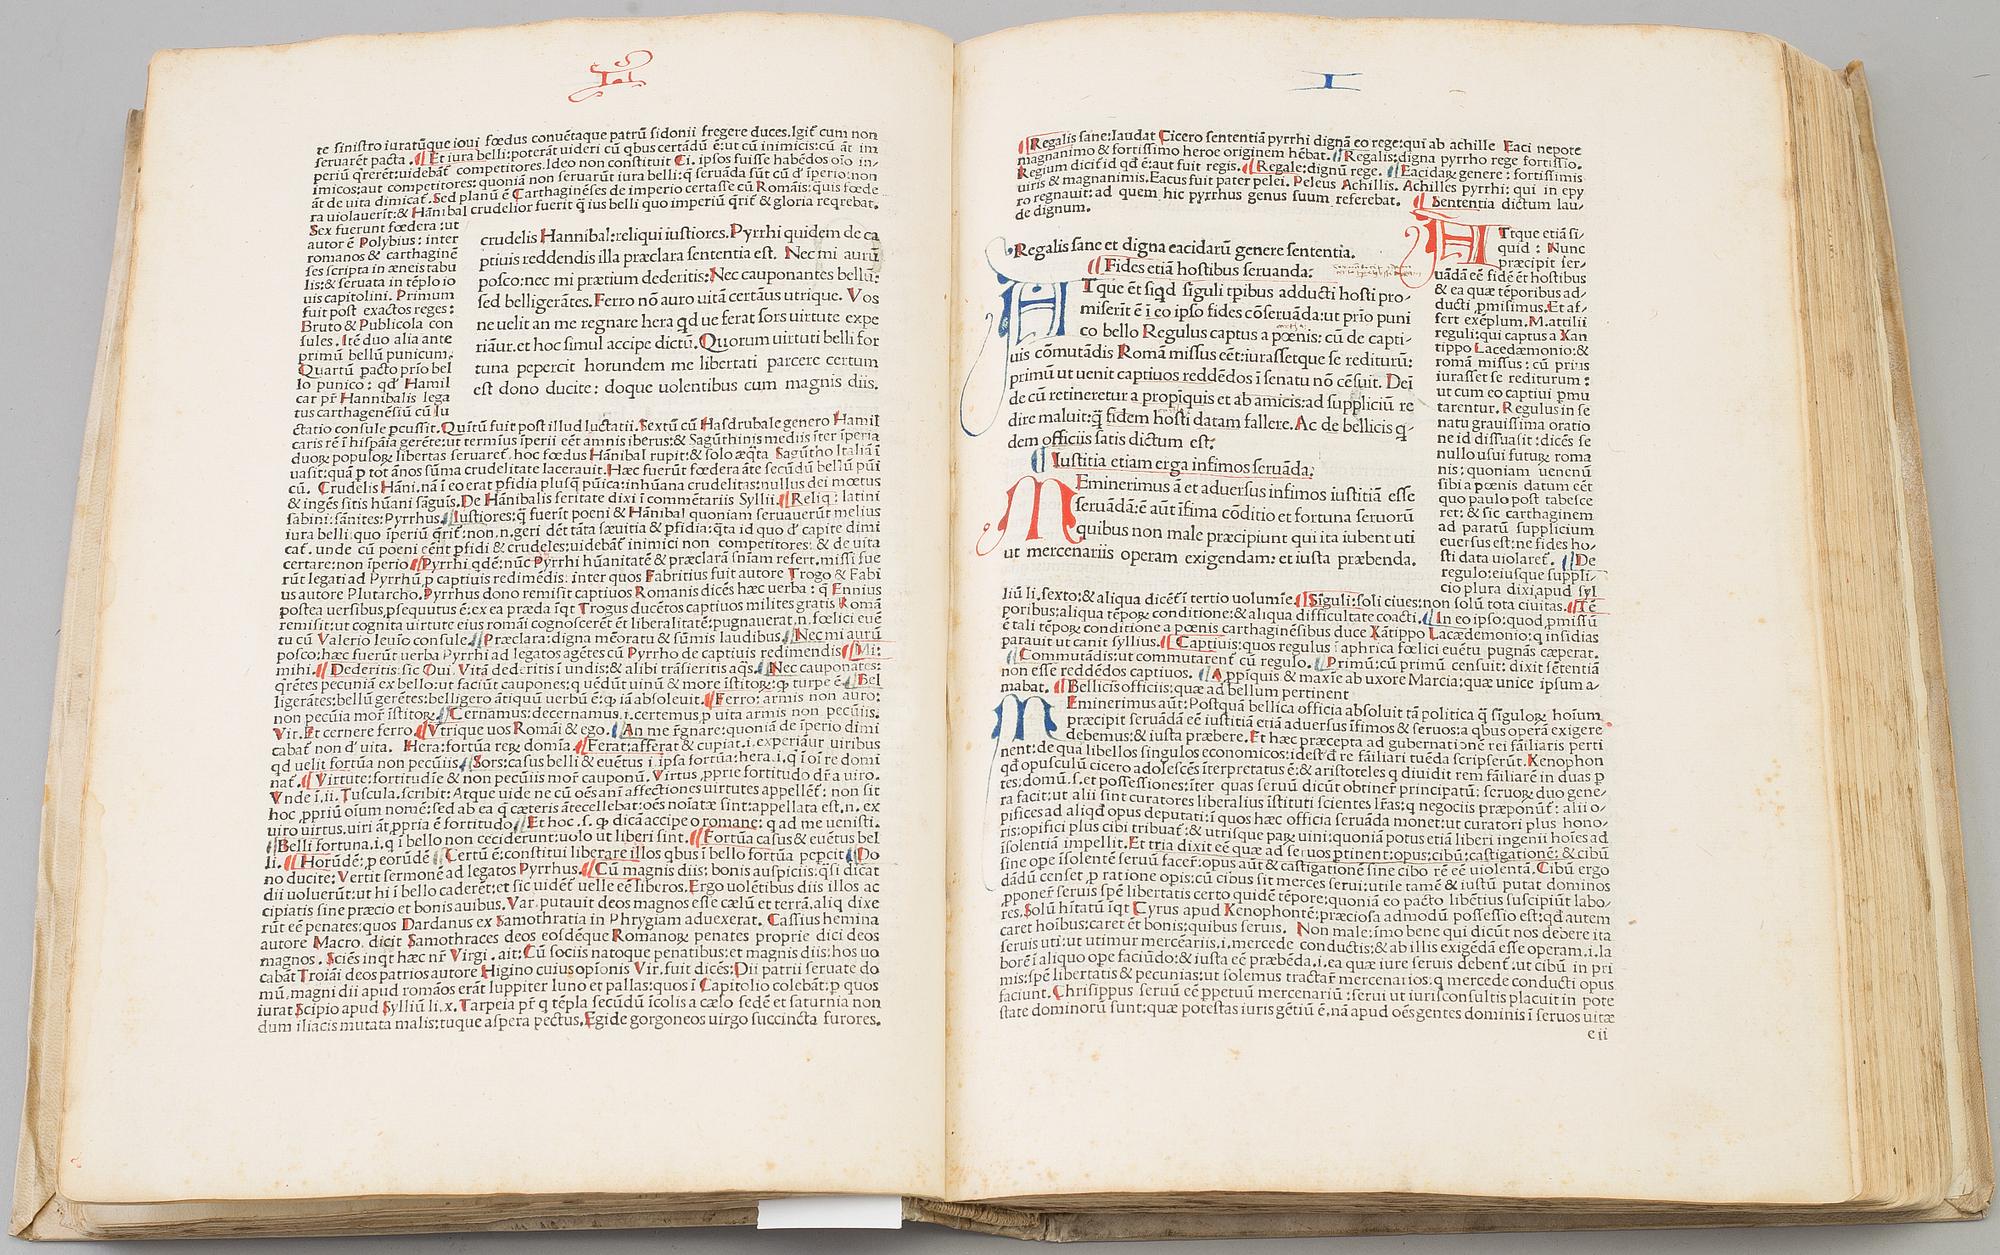 Li
te sinistro iuratūque ioui fœdus conuētaque patrū sidonii fregere duces. Igit̄ cum non
seruarēt pacta. Et iura belli: poterāt uideri cū qbus certādū ē: ut cū inimicis: cū āt im
periū qrerēt: uidebāt̄ competitores. Ideo non constituit Ci. ipsos fuisse habēdos oīo in-
imicos: aut competitores: quoniā non seruarūt iura belli: q seruāda sūt cū d' īperio: non
āt de uita dimicat̄. Sed planū ē Carthaginēses de imperio certasse cū Romāis: quis fœde
ra uiolauerīt: & Hānibal crudelior fuerit q̄ ius belli quo imperiū qrit̄ & gloria reqrebat.
Sex fuerunt fœdera: ut
autor ē Polybius: inter
romanos & carthaginē
ses scripta in æneis tabu
lis: & seruata in tēplo io
uis capitolini. Primum
fuit post exactos reges:
Bruto & Publicola con
sules. Itē duo alia ante
primū bellū punicum.
Quartū pacto prīo bel
lo punico: qd' Hamil
car pr̄ Hannibalis lega
tus carthagenēsiū cū lu
crudelis Hannibal: reliqui iustiores. Pyrrhi quidem de ca
ptiuis reddendis illa præclara sententia est. Nec mi aurū
posco: nec mi prætium dederitis: Nec cauponantes bellū:
sed belligerātes. Ferro nō auro uitā certāus utrique. Vos
ne uelit an me regnare hera qd ue ferat sors uirtute expe
riāur. et hoc simul accipe dictū. Quorum uirtuti belli for
tuna pepercit horundem me libertati parcere certum
est dono ducite: doque uolentibus cum magnis diis.
ctatio consule pcussit. Quītū fuit post illud luctatii. Sextū cū Hasdrubale genero Hamil
caris rē ī hispāia gerēte: ut termīus īperii eēt amnis iberus: & Sagūthinis mediis īter īperia
duoꝝ populoꝝ libertas seruaret̄. hoc fœdus Hānibal rupit: & solo æqta Sagūtho Italiā ī
uasit: quā p tot ānos sūma crudelitate lacerauit. Hæc fuerūt fœdera āte secūdū bellū pūi
cū. Crudelis Hāni. nā ī eo erat pfidia plusq̄ pūica: inhūana crudelitas: nullus dei mœtus
& ingēs sitis hūani sāguis. De Hānibalis feritate dixi ī commētariis Syllii. Reliq: latini
sabini: sānites: Pyrrhus. Iustiores: q̄ fuerīt poeni & Hānibal quoniam seruauerūt melius
iura belli: quo īperiū qrit̄: non. n. geri dēt tāta sæuitia & pfidia: qta id quo d' capite dimi
cat̄. unde cū poeni eēnt pfidi & crudeles: uidebāt̄ inimici non competitores: & de uita
certare: non īperio. Pyrrhi qdē: nūc Pyrrhi hūanitatē & præclarā sniam refert. missi fue
rūt legati ad Pyrrhū p captiuis redimēdis. inter quos Fabritius fuit autore Trogo & Fabi
us autore Plutarcho. Pyrrhus dono remisit captiuos Romanis dicēs hæc uerba: q Ennius
postea uersibus psequutus ē: ex ea præda īqt Trogus ducētos captiuos milites gratis Romā
remisit: ut cognita uirtute eius romāi cognoscerēt et liberalitatē: pugnauerat. n. fœlici euē
tu cū Valerio leuīo consule. Præclara: digna mēoratu & sūmis laudibus. Nec mi aurū
posco: hæc fuerūt uerba Pyrrhi ad legatos agētes cū Pyrrho de captiuis redimendis. Mi:
mihi. Dederitis: sic Oui. Vitā dederitis ī undis: & alibi trāsieritis aqs. Nec cauponātes:
qrētes pecuniā ex bello: ut faciūt caupones: q uēdūt uinū & more īstitoꝝ: qꝫ turpe ē. Bel
ligerātes: bellū gerētes: belligero ātiquū uerbū ē: qꝫ iā absoleuit. Ferro: armis non auro:
non pecūia mor̄ īstitoꝝ. Cernamus: decernamus. i. certemus p uita armis non pecūiis.
Vir. Et cernere ferro. Vtrique uos Romāi & ego. An me rgnare: quoniā de īperio dimi
cabat̄ non d' uita. Hera: fortūa reꝝ domīa. Ferat: afferat & cupiat. i. experiāur uiribus
qd uelit fortūa non pecūiis. Sors: casus belli & euētus ī ipsa fortūa: hera. i. q ī oī re domi
nat̄. Virtute: fortitudīe & non pecūiis mor̄ cauponū. Virtus pprie fortitudo dr̄ a uiro.
Vnde ī. ii. Tuscula. scribit: Atque uide ne cū oēs anī affectiones uirtutes appellēt̄: non sit
hoc ppriū oīum nomē: sed ab ea q cæteris ātecellebat: oēs noīatæ sint: appellata est. n. ex
uiro uirtus. uiri āt ppria ē fortitudo. Et hoc. s. qꝫ dicā accipe o romane: q ad me uenisti.
Belli fortuna. i. q ī bello non ceciderunt: uolo ut liberi sint. Fortūa casus & euētus bel
li. Horūdē: p eorūdē Certū ē: constitui liberare illos qbus ī bello fortūa pepcit. Do
no ducite: Vertit sermonē ad legatos Pyrrhus. Cū magnis diis: bonis auspiciis: qsi dicat
dii uoluerūt: ut hi ī bello caderēt: et sic uidet̄ uelle eē liberos. Ergo uolētibus diis illos ac
cipiatis sine præcio et bonis auibus. Var. putauit deos magnos esse cælū et terrā. aliq dixe
rūt eē penates: quos Dardanus ex Samothratia in Phrygiam aduexerat. Cassius hemina
autore Macro dicit Samothraces deos eosdēque Romanoꝝ penates proprie dici deos
magnos. Sciēs inqt hæc nr̄ Virgi. ait: Cū sociis natoque penatibus: et magnis diis: hos uo
cabāt Troiāi deos patrios autore Higino cuius opīonis Vir. fuit dicēs: Dii patrii seruate do
mū. magni dii apud romāos erāt Iuppiter Iuno et pallas: quos ī Capitolio colebāt: p quos
iurat Scipio apud Sylliū li. x. Tarpeia pr̄ q tēpla secūdū īcolis a cælo sedē et saturnia non
dum iliacis mutata malis: tuque aspera pectus. Egide gorgoneos uirgo succincta furores.
I
Regalis sane: laudat Cicero sententiā pyrrhi dignā eo rege: qui ab achille Eaci nepote
magnanimo & fortissimo heroe originem hēbat. Regalis: digna pyrrho rege fortissīo.
Regium dicit̄ id qd ē: aut fuit regis. Regale: dignū rege. Eacidaꝝ genere: fortissimis
uiris & magnanimis. Eacus fuit pater pelei. Peleus Achillis. Achilles pyrrhi: qui in epy
ro regnauit: ad quem hic pyrrhus genus suum referebat. Sententia dictum lau-
de dignum.
Regalis sane et digna eacidarū genere sententia.
Fides etiā hostibus seruanda.
ATque ēt siqd siguli tpibus adducti hosti pro-
miserīt ē ī eo ipso fides cōseruāda: ut prīo puni
co bello Regulus captus a pœnis: cū de capti-
uis cōmutādis Romā missus eēt: iurassetque se rediturū:
primū ut uenit captiuos reddēdos ī senatu nō cēsuit. Dei
de cū retineretur a propīquis et ab amicis: ad suppliciū re
dire maluit: q̄ fidem hosti datam fallere. Ac de bellicis q-
dem officiis satis dictum est.
Iustitia etiam erga infimos seruāda.
MEminerimus ā et aduersus infimos iustitiā esse
seruādā: ē aūt īfima cōditio et fortuna seruorū
quibus non male præcipiunt qui ita iubent uti
ut mercenariis operam exigendam: et iusta præbenda.
ATque etiā si-
quid: Nunc
præcipit ser-
uādā eē fidē ēt hostibus
& ea quæ tēporibus ad-
ducti pmisimus. Et af-
fert exēplum. M. attilii
reguli: qui captus a Xan
tippo Lacedæmonio: &
romā missus: cū prius
iurasset se rediturum:
ut cum eo captiui pmu
tarentur. Regulus in se
natu grauissima oratio
ne id dissuasit: dicēs se
nullo usui futuꝝ roma
nis: quoniam uenenū
sibi a pœnis datum eēt
quo paulo post tabesce
ret: & sic carthaginem
ad paratū supplicium
euersus est: ne fides ho-
sti data uiolaret̄. De
regulo: eiusque suppli-
cio plura dixi apud syl
liū li. sexto: & aliqua dicēt̄ ī tertio uolumīe. Siguli: soli ciues: non solū tota ciuitas. Tē
poribus: aliqua tēpoꝝ conditione: & aliqua difficultate coacti. In eo ipso: quod pmissū
ē tali tēpoꝝ conditione a pœnis carthaginēsibus duce Xātippo Lacædemonio: q insidias
parauit ut canit syllius. Captiuis: quos regulus ī aphrica fœlici euētu pugnās cæperat.
Commutādis: ut commutarent̄ cū regulo. Primū: cū primū censuit: dixit sētentiā
non esse reddēdos captiuos. A ppiquis & maxīe ab uxore Marcia: quæ unice ipsum a-
mabat. Bellicis officiis: quæ ad bellum pertinent
MEminerimus aūt: Postquā bellica officia absoluit tā politica q̄ siguloꝝ hoīum
præcipit seruādā eē iustitiā etiā aduersus īfimos & seruos: a qbus operā exigere
debemus: & iusta præbere. Et hæc præcepta ad gubernationē rei fāiliaris perti
nent: de qua libellos singulos economicos: idest d' re fāiliari tuēda scripserūt. Xenophon
qd' opusculū cicero adolescēs īterpretatus ē: & aristoteles q diuidit rem fāiliarē in duas p
tes: domū. s. et possessiones: īter quas seruū dicūt obtiner̄ principatū: seruoꝝ duo gene-
ra facit: ut alii sint curatores liberalius īstituti scientes lr̄as: q negociis præponūt̄: alii o-
pifices ad aliqd' opus deputati: ī quos hæc officia seruāda monet: ut curatori plus hono-
ris: opifici plus cibi tribuat̄: & utrisque paꝝ uini: quoniā potus etiā liberi ingenii hoīes ad
īsolentiā impellit. Et tria dixit eē quæ ad seruos ptinent: opus: cibū: castigationē: & cibū
sine ope īsolentē seruū facer̄: opus aūt & castigationē sine cibo rē eē uiolentā. Cibū ergo
dādū censet p ratione opis: cū cibus sit merces serui: utile tamē & iustū putat dominos
pponer̄ seruis spē libertatis certo quidē tēpore: quoniā eo pacto libētius suscipiūt labo-
res. Solū hītatū īqt Cyrus apud Xenophontē: præciosa admodū possessio est: qd autem
caret hoībus: caret ēt bonis: quibus seruis. Non male: īmo bene qui dicūt nos debere ita
seruis uti: ut utimur mercēariis. i. mercede conductis: & ab illis exigēdā esse operam. i. la
borē ī aliquo ope faciūdo: & iusta eē præbēda. i. ea quæ iure seruis debent̄: ut cibū in pri
mis: spē libertatis & pecunias: ut solemus tractar̄ mercenarios: q mercede conducti opus
faciunt. Chrisippus seruū eē ppetuū mercenariū: serui ut iurisconsultis placuit in pote
state dominorū sunt: quæ potestas iuris gētiū ē. nā apud oēs gentes dominis ī seruos uitæ
e ii